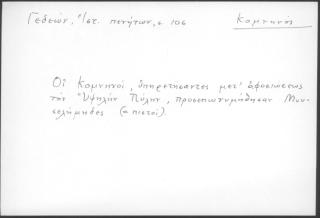 Γεδεών, Ἱστ. πενήτων, σ. 106
Κομνηνοι
Οἱ Κομνηνοί, ὑπηρετήσαντες μετ' ἀφοσιώσεως
τὴν Ὑψηλὴν Πύλην, προσεπωνυμήθησαν Μου-
σελήμηδες (= πιστοί).